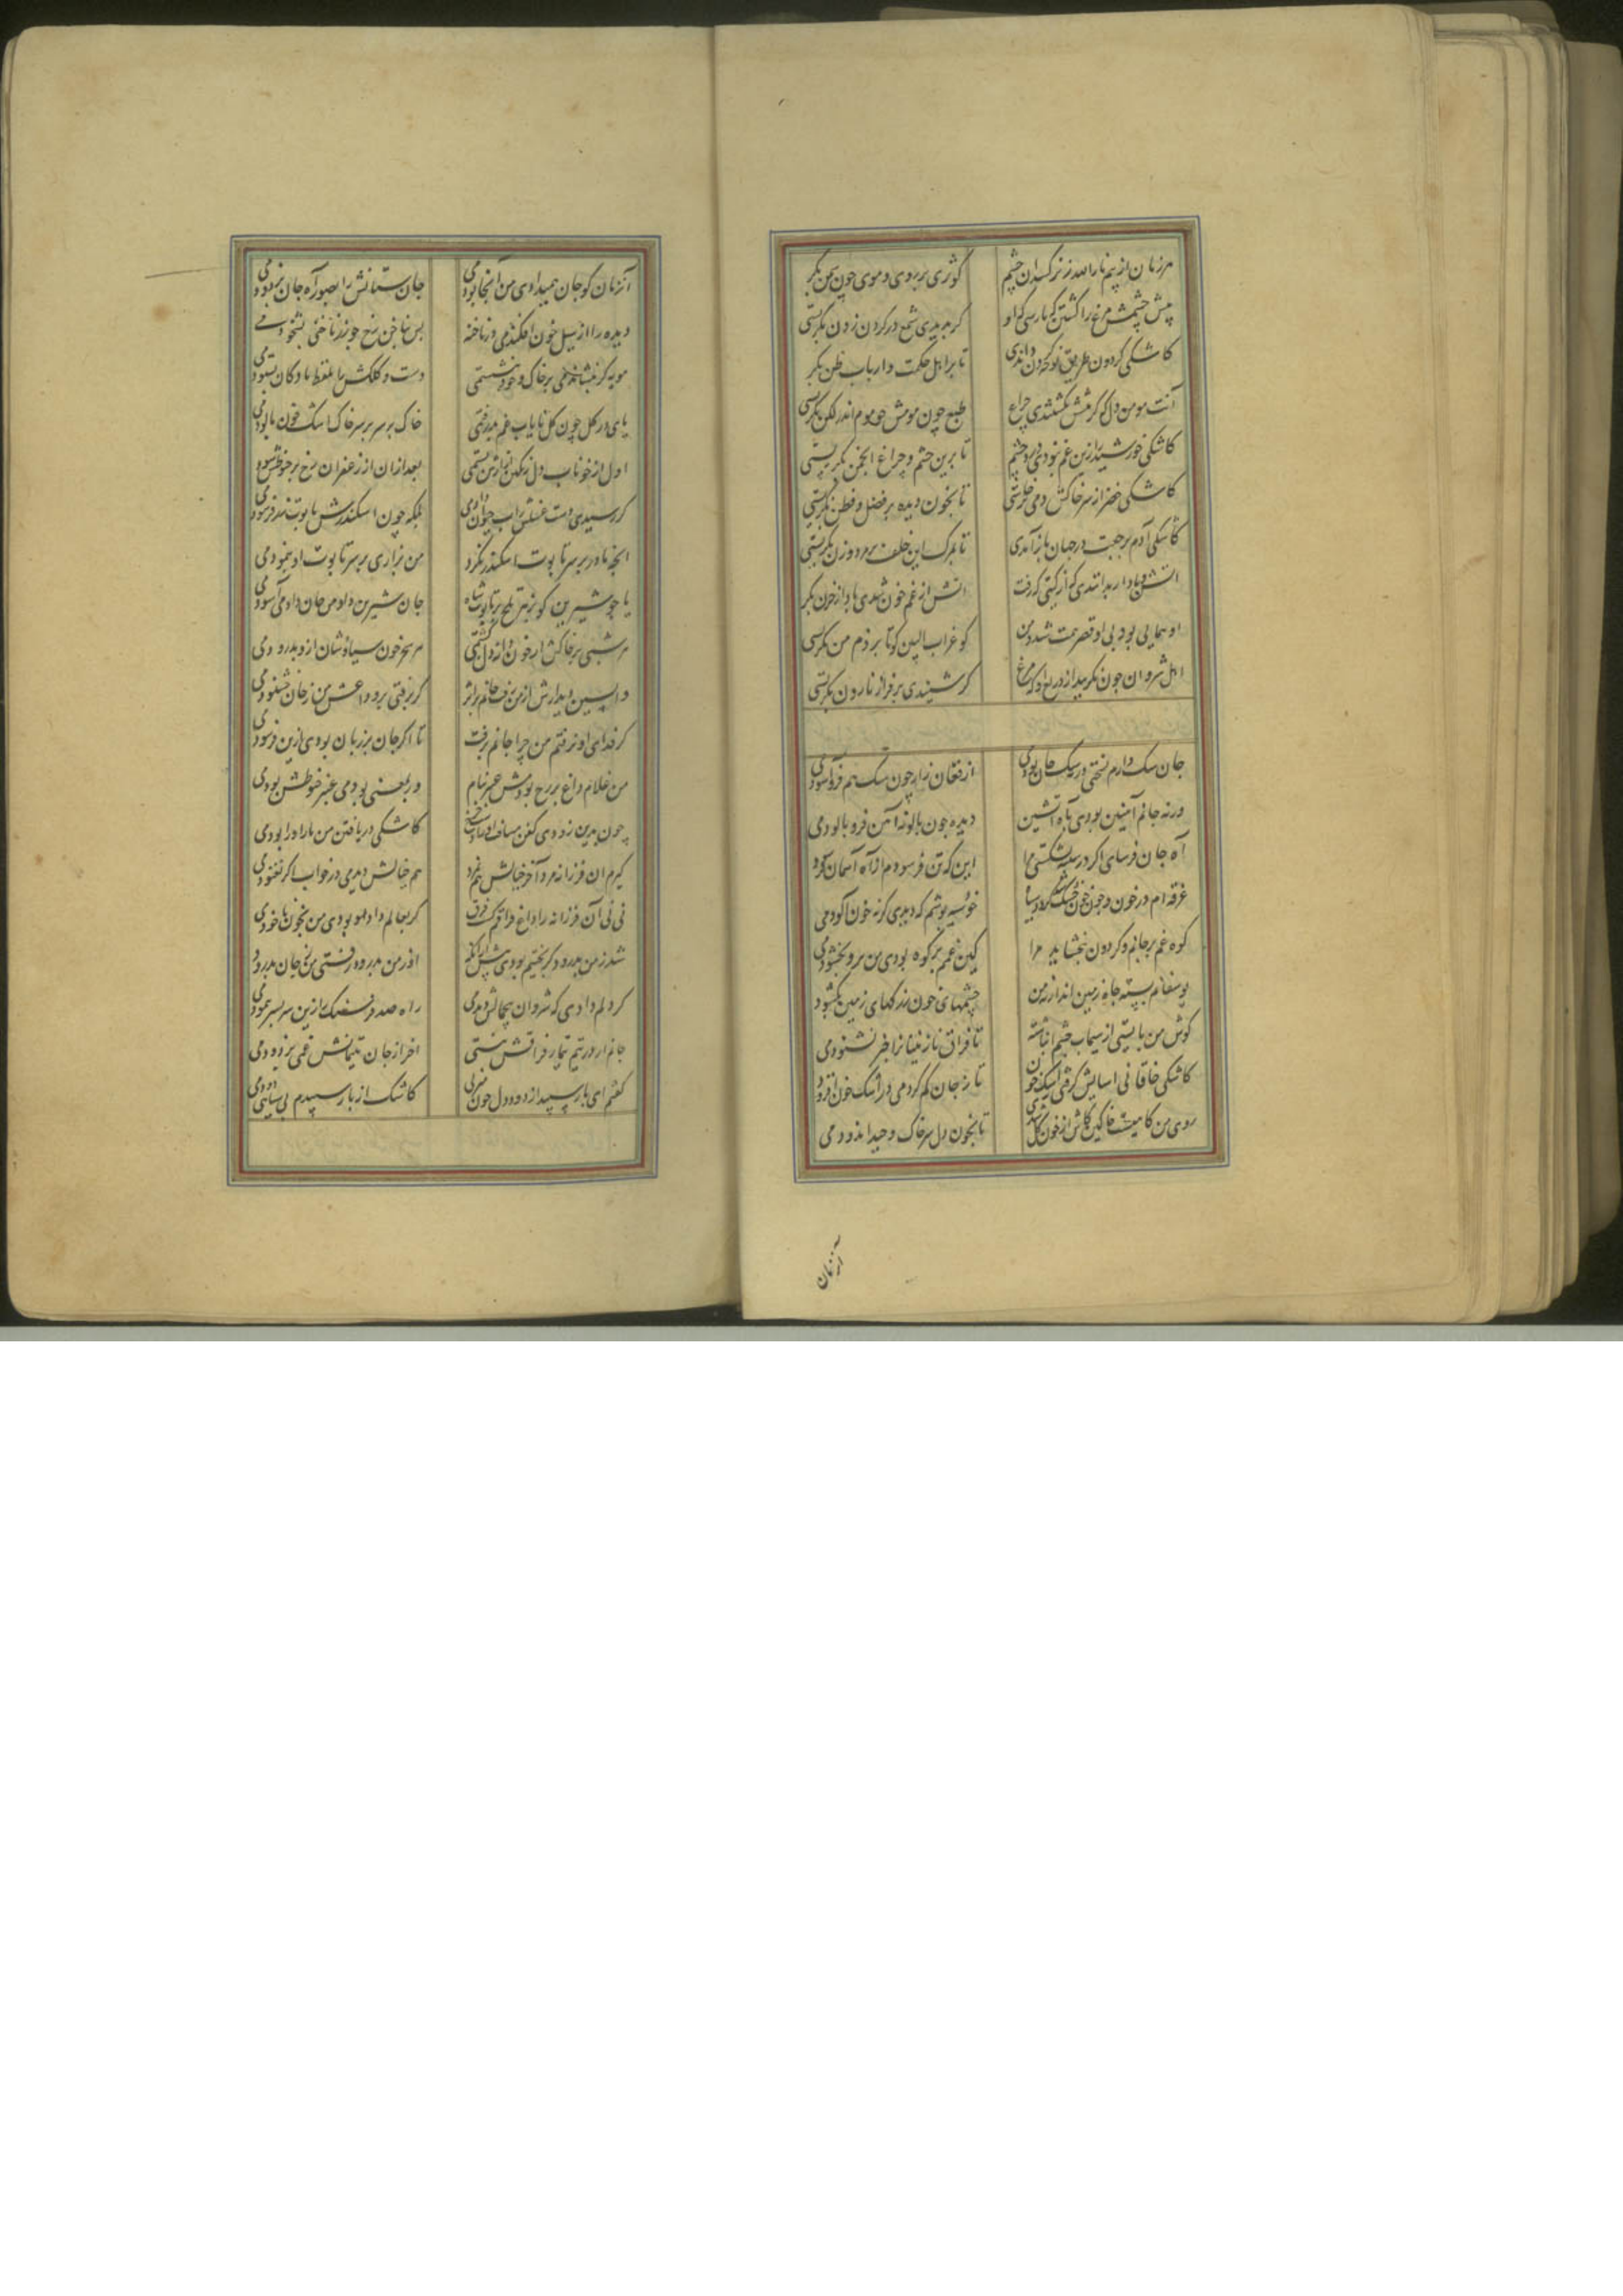 هر زمان از بیم نار الله ز نرگسدان چشم
کوثری بر روی و موی چون سمن بگر
پیش چشمش مرغ را کشتن که یارستی که او
گر بدیدی شمع در گردن زدن بگرستی
کاشکی گردون طریق نوحه کردن داندی
تا بر اهل حکمت و ارباب ظن بگر
آتش و من دل کو گر کشتندی چراغ
طبع چون مومش چو موم اندر لگن بگرستی
کاشکی خورشید را زین غم نبودی درد چشم
تا برین چشم و چراغ انجمن بگریستی
کاشکی خضر از سر خاکش دمی برخاستی
تا بخون دیده بر فضل و فطن بگریستی
کاشکی آدم برجعت در جهان باز آمدی
تا بمرگ این خلف بر مرد و زن بگریستی
آتش و باد ار بدانندی که از گیتی که رفت
آتش از غم خون شدی باد از حزن بگر
او همایی بود بی او قصر حکمت شد دمن
کو غراب البین کو تا بر دمن بگرستی
اهل شروان چون نگریند از دریغ او که مرغ
گر شنیدی بر فراز نارون بگرستی
جان سگ دارم بسختی ورنه سگ جان بودمی
از فغان زار چون سگ هم فرو آسودمی
ورنه جانم آهنین بودی بآه آتشین
دیده چون پالونه آهن فرو پالودمی
آه جان فرسای اگر در سینه نشکستی مرا
این که تن فرسودم از آه آسمان فرسودمی
غرقه ام در خون و خون چون خشک گردد شد سیاه
خود سیه پوشم که دیدی گر نه خون آلودمی
کوه غم بر جانم و گردون نبخشاید مرا
کین غمم بر کوه بودی من برو بخشودمی
بوسفانم بسته چاه زمین اند ار نه من
چشمهای خون ز رگهای زمین بگشودمی
گوش من بایستی از سیماب چشم انباشته
تا فراق نازنینان را خبر نشنودمی
کاشکی خاقانی آسایش گرفتی ز اشک خون
تا ز جان کم کردمی در اشک خون افزودمی
روی من کاهیست خاکین کاش از خون گل شدی
تا بخون دل سر خاک وحید اندودمی
آنزمان
آنزمان کو جان همیدادی من آنجا بودمی
جان ستانش را بصور آه جان بربودمی
دیده را از سیل خون افکندمی در ناخنه
پس بناخن رخ چو زر ناخنی بشخودمی
مویه گر بنشاندمی بر خاک و خود بنشستمی
دست و کلکش را بلفظ مادگان بستودمی
پای در گل چون گل پایاب غم پذرفتمی
خاک بر سر بر سر خاک اشک خون پالودمی
اول از خوناب دل رنگین ازارش بستمی
بعد از آن از زعفران رخ بر حنوطش سودمی
گر رسیدی دست غسلش ز آب حیوان دادمی
بلکه چون اسکندرش تابوت زر فرمودمی
آنچه مادر بر سر تابوت اسکندر نکرد
من بزاری بر سر تابوت او بنمودمی
یا چو شیرین کو بزهر تلخ بر تابوت شاه
جان شیرین داد من جان دادمی آسودمی
هر شبی بر خاکش از خون دانه دل کشتمی
هر سحر خون سیاوشان ازو بدرودمی
واپسین دیدارش از من رفت جانم بر اثر
گر برفتی بر وداعش من ز جان خشنودمی
گر فدای او نرفتم من چرا جانم برفت
تا اگر جان بر زیان بودی ازین بر سودمی
من غلام داغ بر رخ بودمش عنبر بنام
ور بمعنی بودمی عنبر حنوطش بودمی
چون بدین زودی کفن میبافت او را دست چرخ
کاشکی در بافتن من تار او را پودمی
گیرم آن فرزانه مرد آخر خیالش هم نمرد
هم خیالش دیدمی در خواب اگر بغنودمی
نی نی آن فرزانه را داغ فراقم کشت فرق
گر بعالم داد او بودی من بخون ماخوذمی
شد ز من بدرود گر بختیم بودی پیش از آنکه
او ز من بدرود رفتی من ز جان بدرودمی
گر دلم دادی که شروان بی جمالش دیدمی
راه صد فرسنگ را زین سر بسر پیمودمی
جانم ار در نیم تیمار فراقش نیستی
آخر از جان یتیمانش غمی بزدودمی
گفتم ای بار سپید از دود دل چون منزلی
کاشک از بار سپیدم بی شبستی دودمی